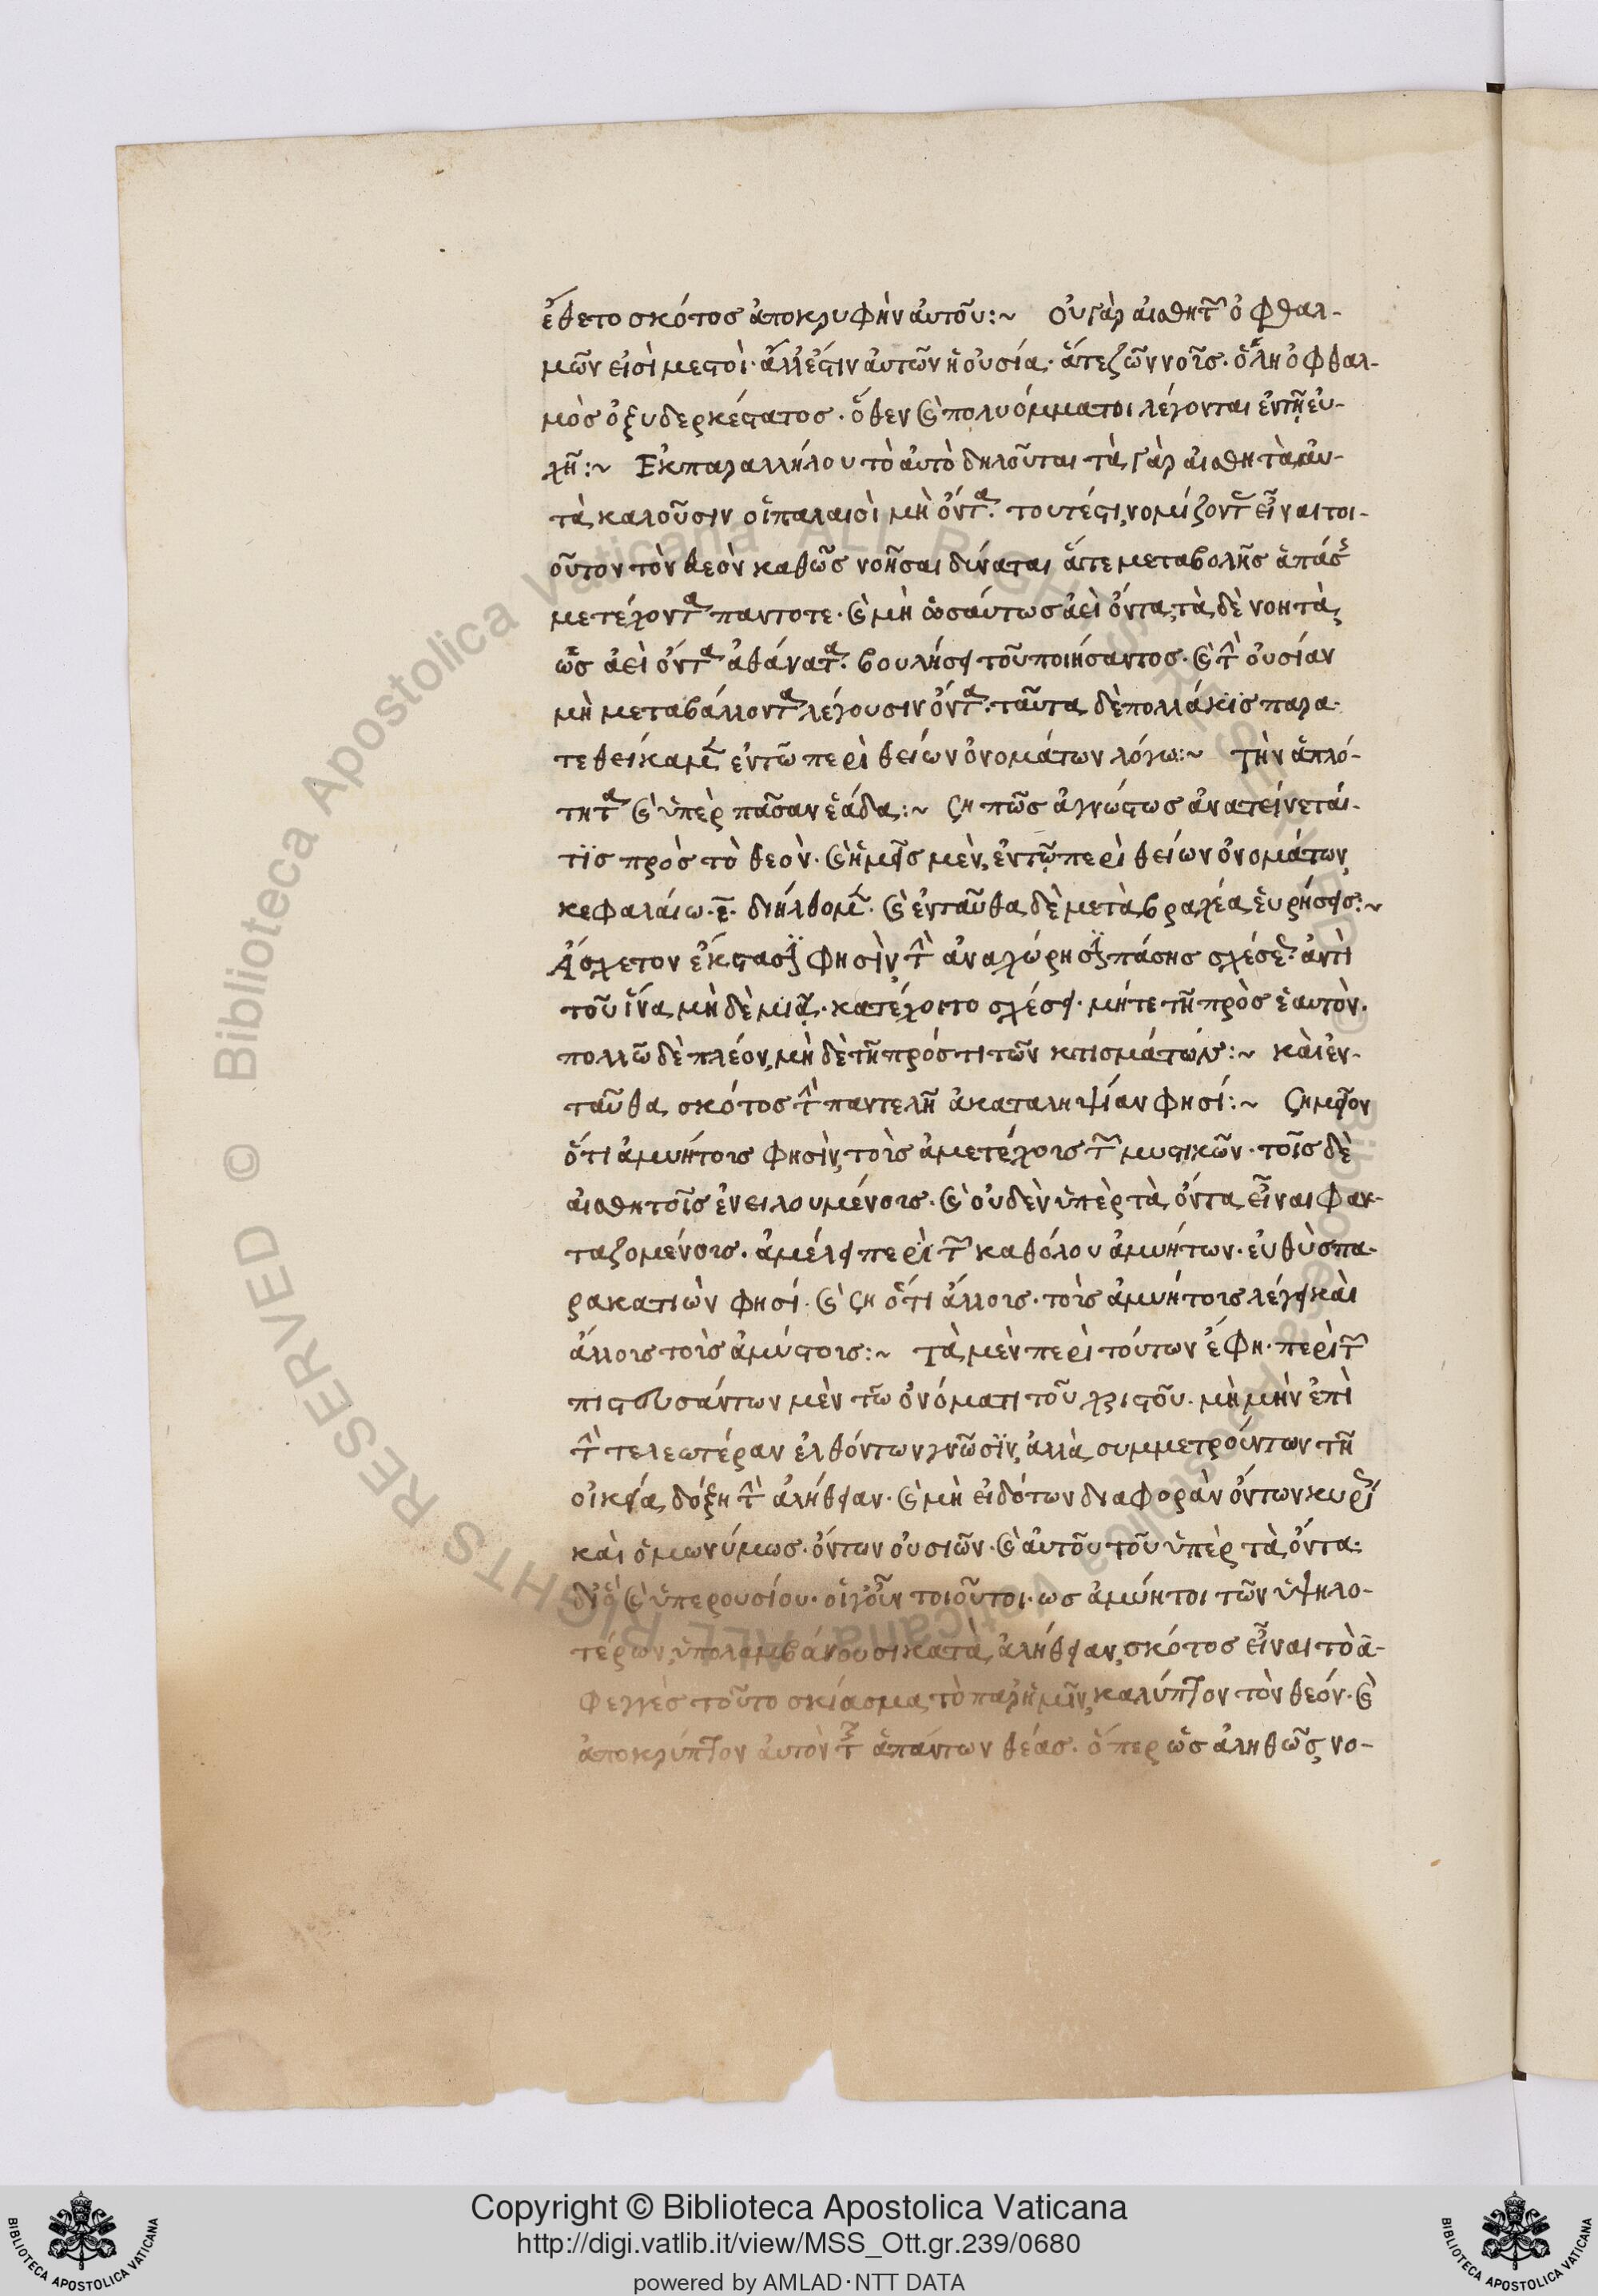 ἔθετο σκότος ἀποκρυφὴν ἀυτοῦ:~ Οὐ γὰρ ἀισθητῶν ὀφθαλ-
μῶν εἰσὶ μεστοὶ· ἀλλ' ἔστιν ἀυτῶν ἡ οὐσία· ἅτε ζῶν νοῦς· ὅλη ὀφθαλ-
μὸς ὀξυδερκέστατος· ὅθεν καὶ πολυόμματοι λέγονται ἐν τῇ εὐ-
χῆ:~ Ἐκ παραλλήλου τὸ ἀυτὸ δηλοῦται τὰ γὰρ ἀισθητὰ ἀυ-
τὰ καλοῦσιν οἱ παλαιοὶ μὴ ὄντα· τουτέστι, νομίζοντες εἶναι τοι-
οῦτον τὸν θεὸν καθῶς νοῆσαι δύναται ἅτε μεταβολῆς ἁπάσης
μετέχοντα παντοτε· καὶ μὴ ὡσαύτως ἀεὶ ὄντα, τὰ δὲ νοητὰ
ὡς ἀεὶ ὄντα ἀθάνατα· βουλήσει τοῦ ποιήσαντος· καὶ τὴν οὐσίαν
μὴ μεταβάλλοντα λέγουσιν ὄντα· ταῦτα δὲ πολλάκις παρα-
τεθείκαμεν ἐν τῶ περὶ θείων ὀνομάτων λόγω:~ Τὴν ἁπλό-
τητα καὶ ὑπὲρ πᾶσαν ἑάδα:~ ση πῶς ἀγνώστως ἀνατείνεταί-
τις πρὸς τὸ θεὸν· καὶ ἡμεῖς μὲν, ἐν τῷ περὶ θείων ὀνομάτων
κεφαλαίω· ε· διήλθομεν· καὶ ἐνταῦθα δὲ μετὰ βραχέα ἑυρήσεις:~
Ἄσχετον ἔκστασιν φησὶν, τὴν ἀναχώρησιν πάσης σχέσεως· ἀντὶ
τοῦ ἵνα μὴ δὲ μιᾷ· κατέχοιτο σχέσει· μήτε τῆ πρὸς ἑαυτὸν·
πολλῶ δὲ πλέον, μὴ δὲ τῆ πρός τι τῶν κτισμάτων:~ καὶ ἐν-
ταῦθα σκότος τὴν παντελῆ ἀκαταληψίαν φησί:~ Σημεῖον
ὅτι ἀμυήτοις φησὶν, τοῖς ἀμετέχοις τῶν μυστικῶν· τοῖς δὲ
ἀισθητοῖς ἐνειλουμένοις· καὶ οὐδὲν ὑπὲρ τὰ ὄντα εἶναι φαν-
ταζομένοις· ἀμέλει περὶ τῶν καθόλου ἀμυήτων· εὐθὺς πα-
ρακατιὼν φησί· καὶ ση ὅτι ἄλλοις· τοῖς ἀμυήτοις λέγει καὶ
ἄλλοις τοῖς ἀμύστοις:~ Τὰ μὲν περὶ τούτων ἔφη· περὶ τῶν
πιστευσάντων μὲν τῶ ὀνόματι τοῦ χριστοῦ· μὴ μὴν ἐπὶ
τὴν τελεωτέραν ἐλθόντων γνῶσιν, ἀλλὰ συμμετρούντων τῆ
οἰκεία δόξη τὴν ἀλήθειαν· καὶ μὴ εἰδότων διαφορὰν ὄντων κυρίως
καὶ ὁμωνύμως· ὄντων οὐσιῶν· καὶ ἀυτοῦ τοῦ ὑπὲρ τὰ ὄντα·
διὸ καὶ ὑπερουσίου· οἱ γοῦν τοιοῦτοι· ως ἀμύητοι τῶν ὑψηλο-
τέρων, ὑπολαμβάνουσι κατὰ ἀλήθειαν, σκότος εἶναι τὸ ἀ-
φεγγὲς τοῦτο σκίασμα τὸ παρ' ἡμῖν, καλύπτον τὸν θεόν· καὶ
ἀποκρύπτον ἀυτὸν τῆς ἁπάντων θέας· ὅπερ ὡς ἀληθῶς νο-
Copyright © Biblioteca Apostolica Vaticana
http://digi.vatlib.it/view/MSS_Ott.gr.239/0680
powered by AMLAD·NTT DATA